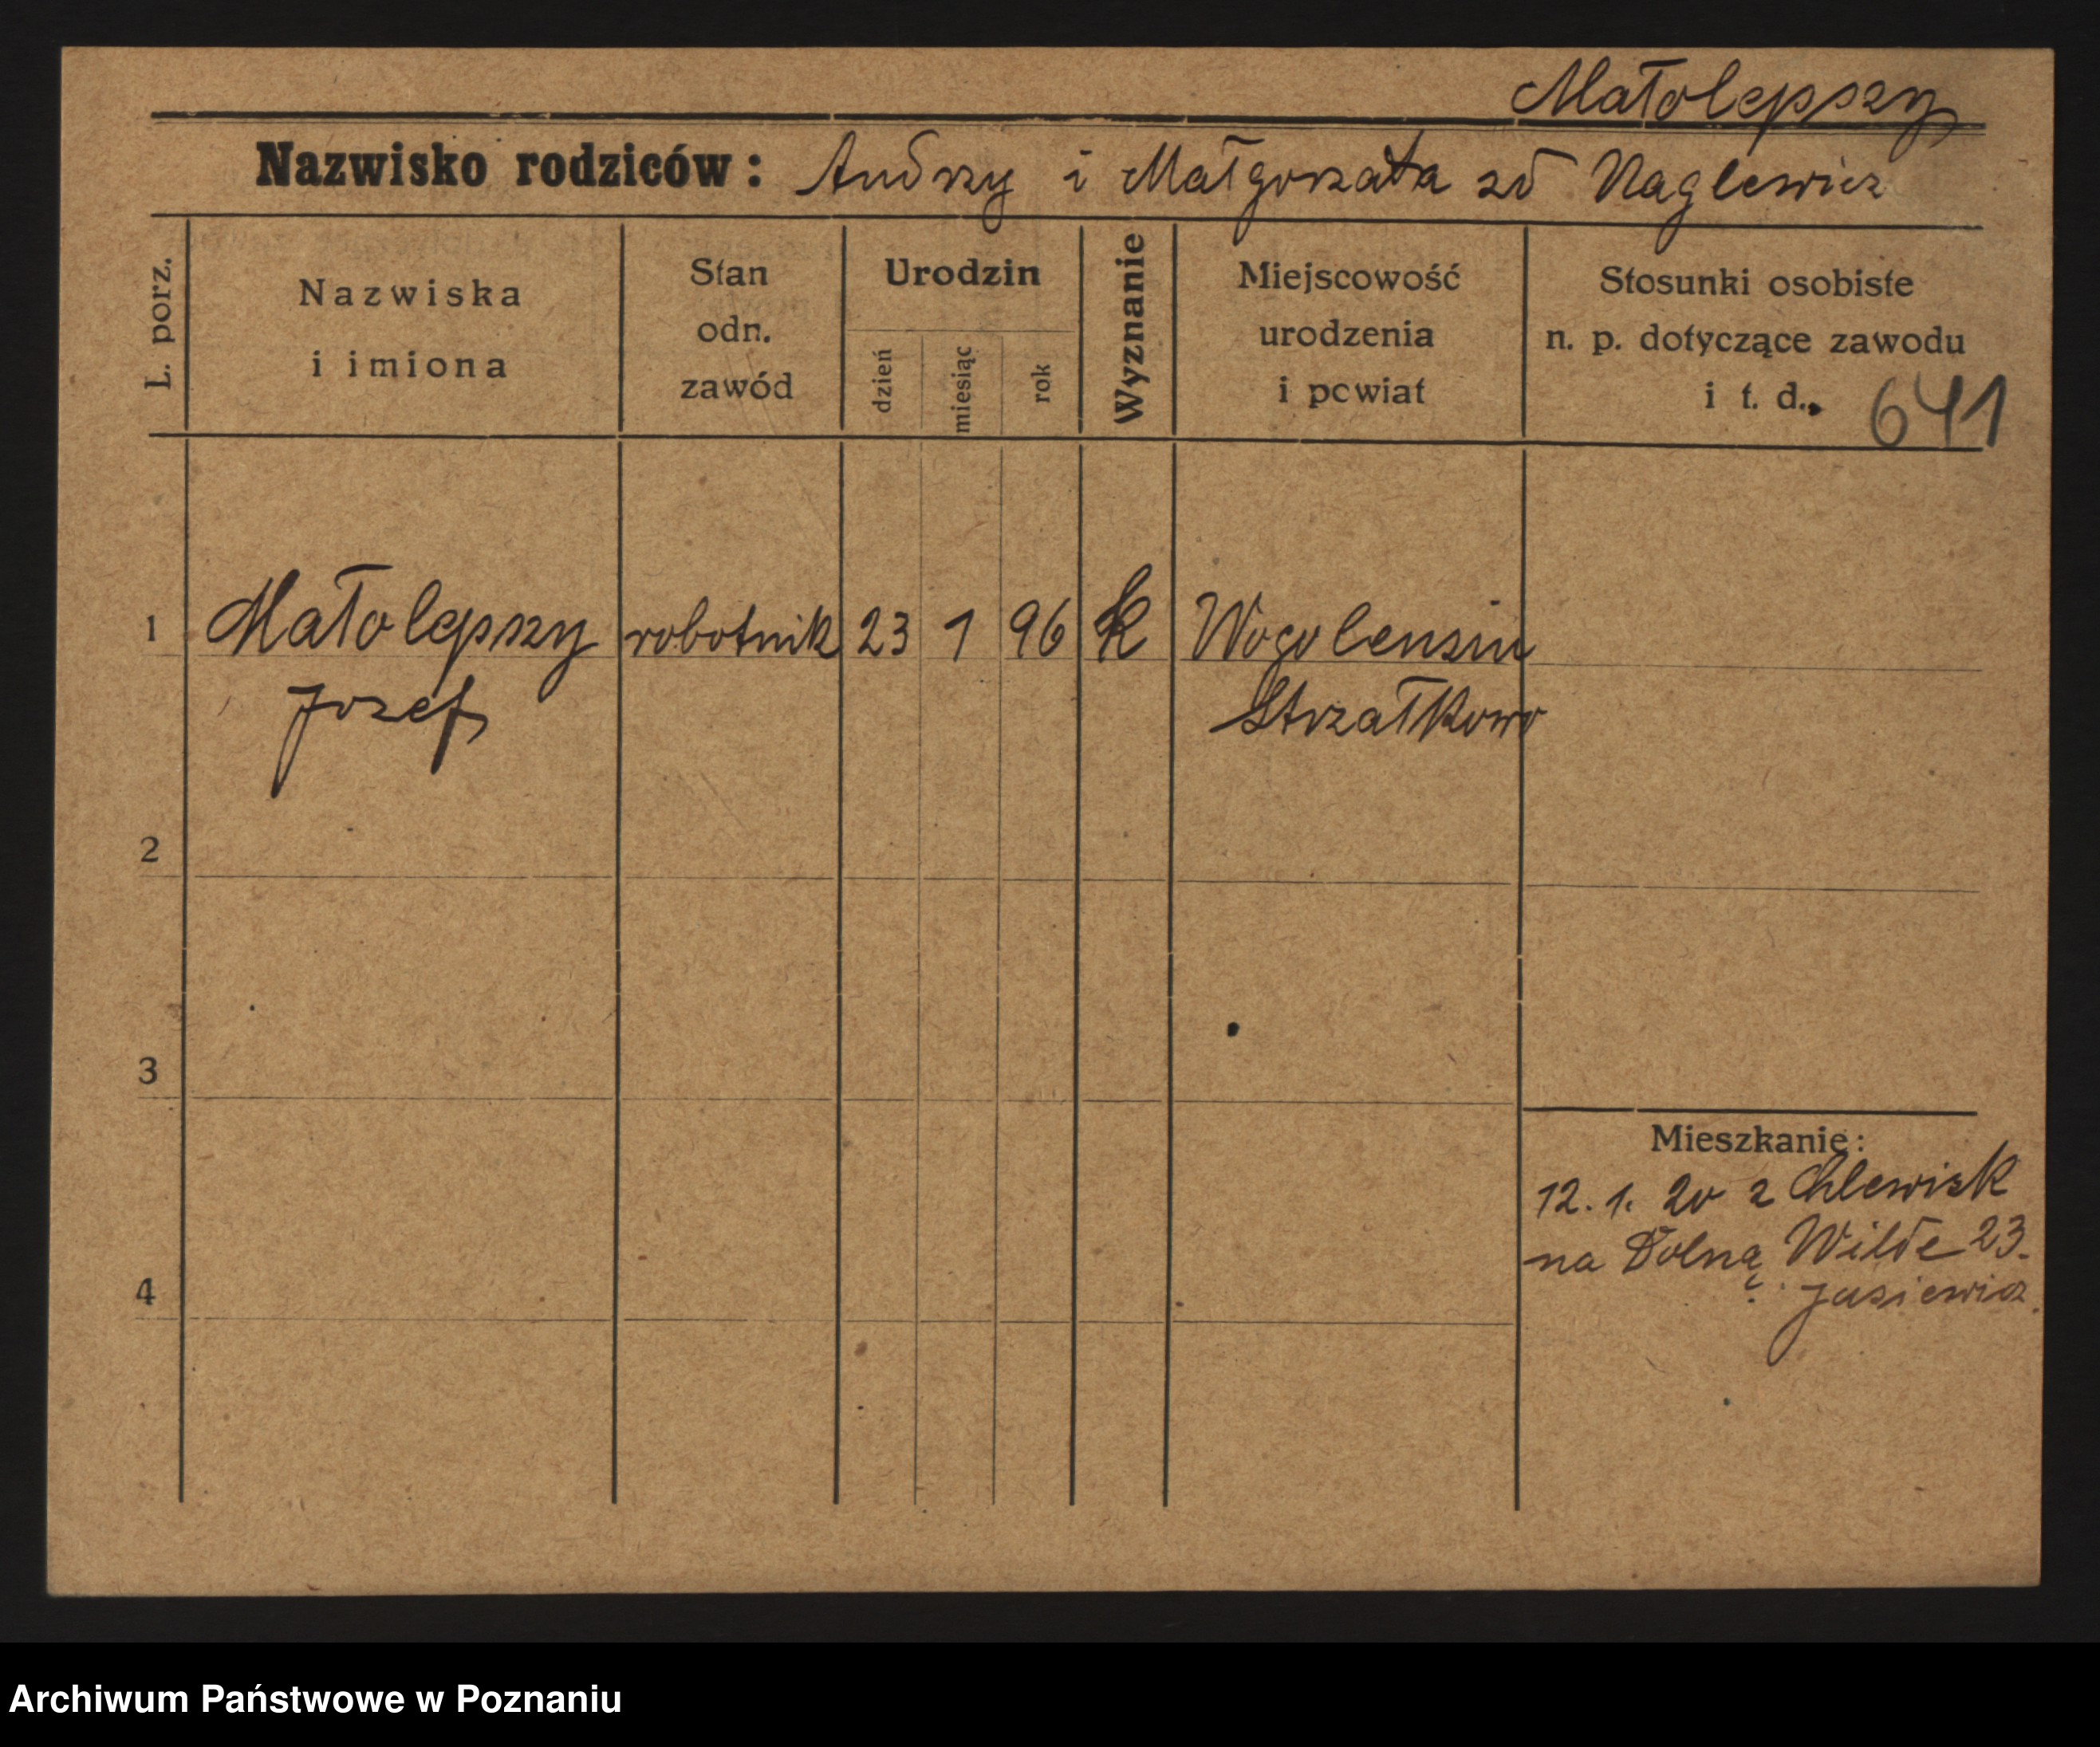 Małolepszy
Nazwisko rodziców: Andrzy i Małgorzata zd Naglewicz
L. porz.
Nazwiska
i imiona
Stan
odn.
zawód
Urodzin
dzień
miesiąc
rok
Wyznanie
Miejscowość
urodzenia
i powiat
Stosunki osobiste
n. p. dotyczące zawodu
i t. d.
641
1 Małolepszy robotnik 23 1 96 k
Józef Strzałkowo
2
3
Mieszkanie:
12. 1. 20 z Chlewisk
na Dolną Wilde 23.
4
Archiwum Państwowe w Poznaniu